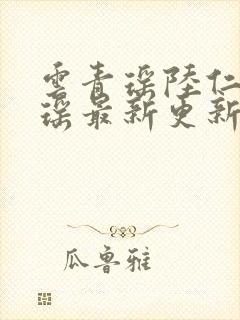 雲青瑶陸仁
瑶最新更新
瓜鲁雅